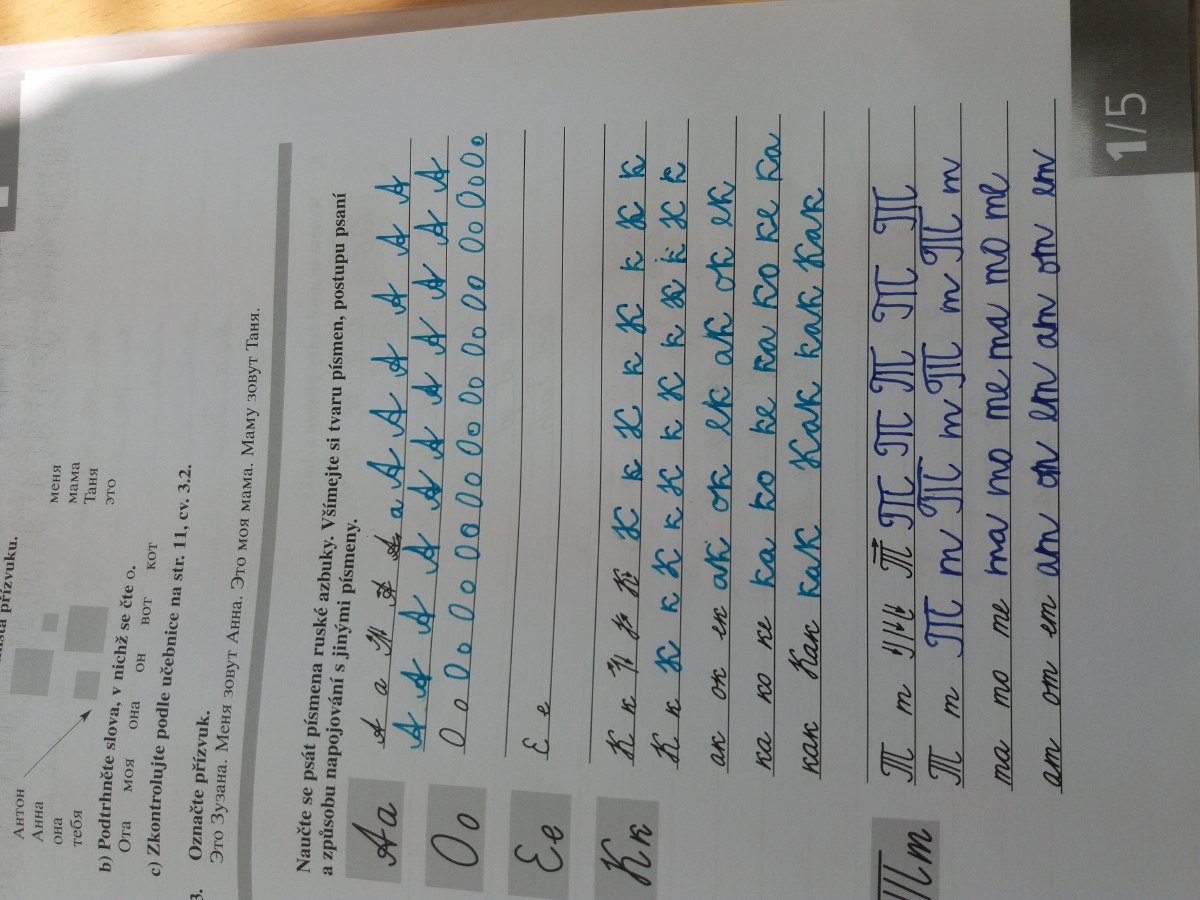 místa přízvuku.
Антон
Анна
она
тебя
меня
мама
Таня
это
b) Podtrhněte slova, v nichž se čte o.
Ота моя она он вот кот
c) Zkontrolujte podle učebnice na str. 11, cv. 3.2.
3. Označte přízvuk.
Это Зузана. Меня зовут Анна. Это моя мама. Маму зовут Таня.
Naučte se psát písmena ruské azbuky. Všímejte si tvaru písmen, postupu psaní
a způsobu napojování s jinými písmeny.
Аа А а А А а А А А А А А
А А А А А А А А А А А
Оо О о О о О о О о О о О о О о О о О о О о
Ее Е е
Кк К к К К к К к К к К к К к
К к К к К к К к К к К к К к
ак ок ек ак ок ек ак ок ек
ка ко ке ка ко ке ка ко ке ка
как Как как Как как Как
Тт Т т Т Т Т Т Т Т Т
Т т Т т Т т Т т Т т
та то те та то те та то те
ат от ет ат от ет ат от ет
1/5